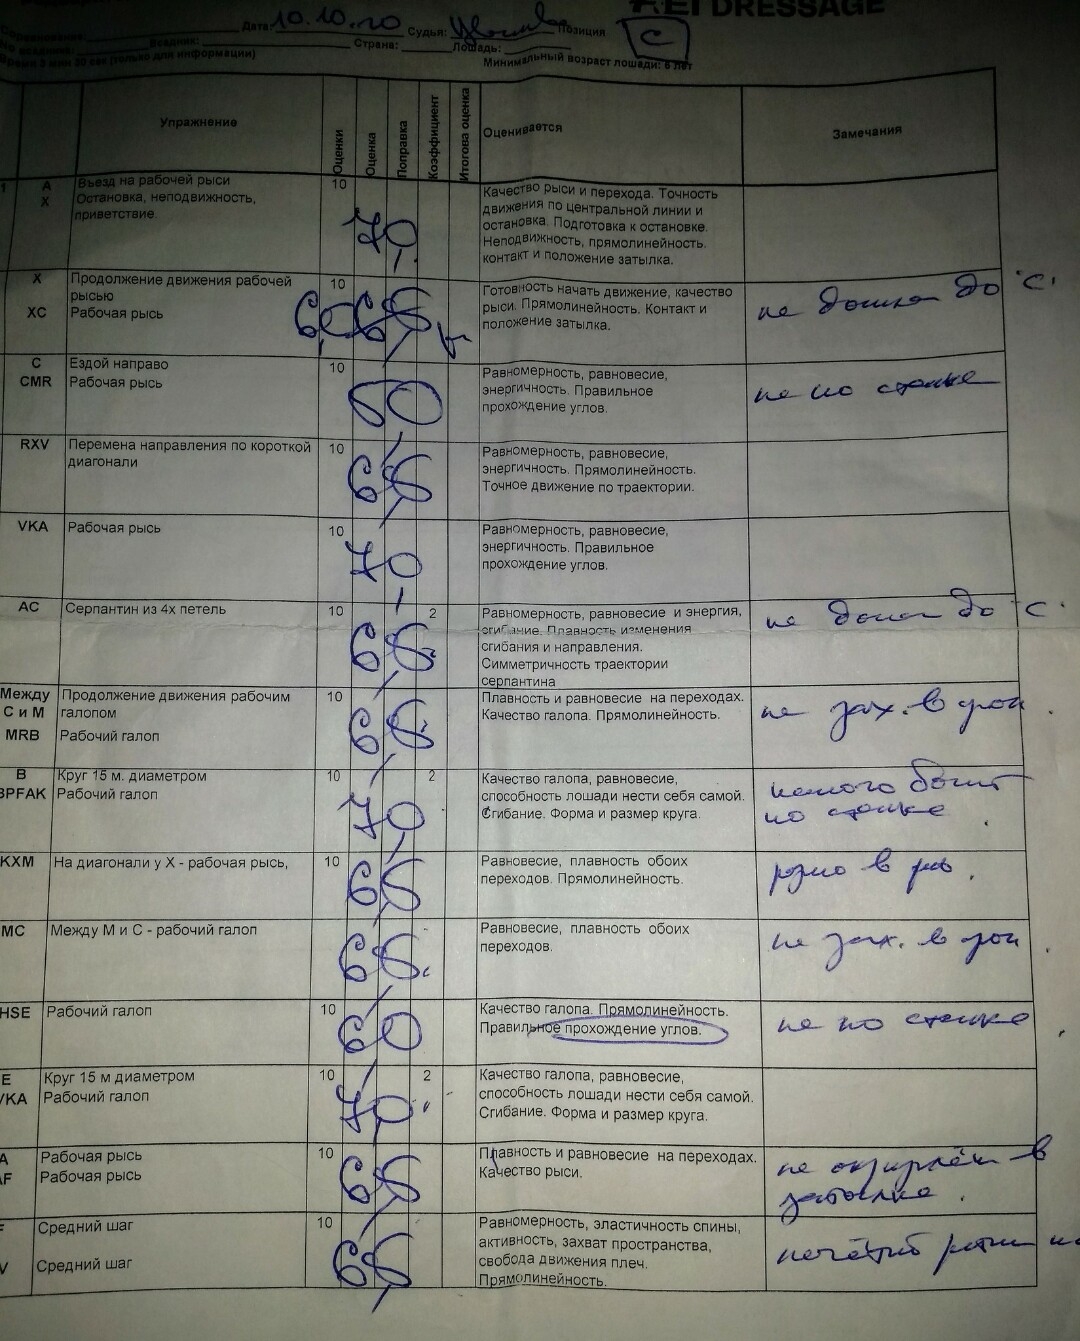 FEI DRESSAGE
Дата: 10.10.20 Судья: Позиция C
Всадник: Страна: Лошадь:
Время 3 мин 30 сек (только для информации) Минимальный возраст лошади: 6 лет
Упражнение Оценки Оценка Поправка Коэффициент Итогова оценка Оценивается Замечания
1 A Въезд на рабочей рыси 10 7,0 Качество рыси и перехода. Точность
X Остановка, неподвижность, движения по центральной линии и
приветствие. остановка. Подготовка к остановке.
Неподвижность, прямолинейность.
контакт и положение затылка.
X Продолжение движения рабочей 10 6,0 6,5 Готовность начать движение, качество не дошла до "С".
рысью рыси. Прямолинейность. Контакт и
XC Рабочая рысь положение затылка.
C Ездой направо 10 6,0 Равномерность, равновесие, не по стенке
CMR Рабочая рысь энергичность. Правильное
прохождение углов.
RXV Перемена направления по короткой 10 6,5 Равномерность, равновесие,
диагонали энергичность. Прямолинейность.
Точное движение по траектории.
VKA Рабочая рысь 10 7,0 Равномерность, равновесие,
энергичность. Правильное
прохождение углов.
AC Серпантин из 4х петель 10 6,5 2 Равномерность, равновесие и энергия, не дошла до "С
сгибание. Плавность изменения
сгибания и направления.
Симметричность траектории
серпантина
Между Продолжение движения рабочим 10 6,5 Плавность и равновесие на переходах. не зах. в угол.
С и М галопом Качество галопа. Прямолинейность.
MRB Рабочий галоп
B Круг 15 м. диаметром 10 7,0 2 Качество галопа, равновесие,
BPFAK Рабочий галоп способность лошади нести себя самой. по стенке.
Сгибание. Форма и размер круга.
KXM На диагонали у X - рабочая рысь, 10 6,5 Равновесие, плавность обоих в
переходов. Прямолинейность.
MC Между М и С - рабочий галоп 10 6,5 Равновесие, плавность обоих не зах. в угол.
переходов.
HSE Рабочий галоп 10 6,0 Качество галопа. Прямолинейность. не по стенке.
Правильное прохождение углов.
E Круг 15 м диаметром 10 7,0 2 Качество галопа, равновесие,
VKA Рабочий галоп способность лошади нести себя самой.
Сгибание. Форма и размер круга.
A Рабочая рысь 10 6,5 Плавность и равновесие на переходах. не в
AF Рабочая рысь Качество рыси. затылке.
F Средний шаг 10 6,5 Равномерность, эластичность спины, нечёткий
активность, захват пространства,
V Средний шаг свобода движения плеч.
Прямолинейность.